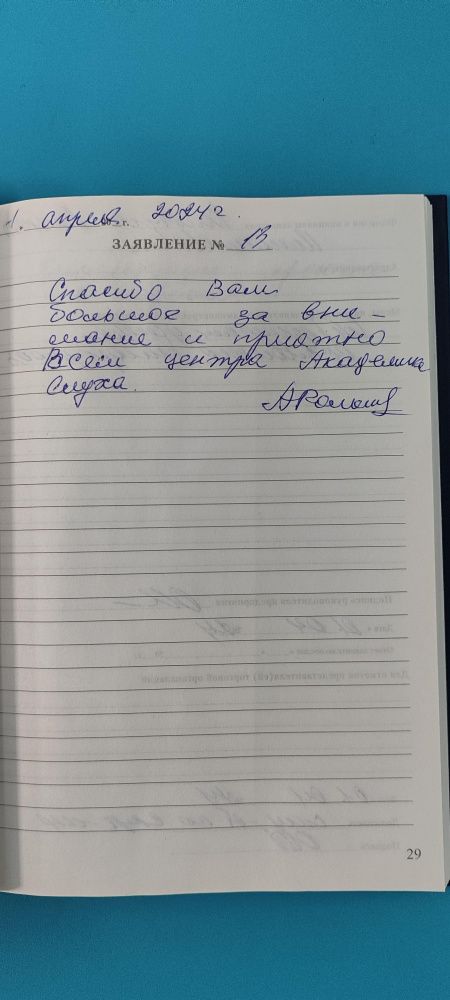 1. апреля 2024 г.
ЗАЯВЛЕНИЕ № 13
Спасибо Вам
большое за вни-
мание и приятно
Всем центра Академика
Слуха.
29